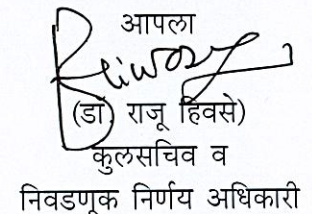 आपला
(डॉ राजू हिवसे)
कुलसचिव व
निवडणूक निर्णय अधिकारी